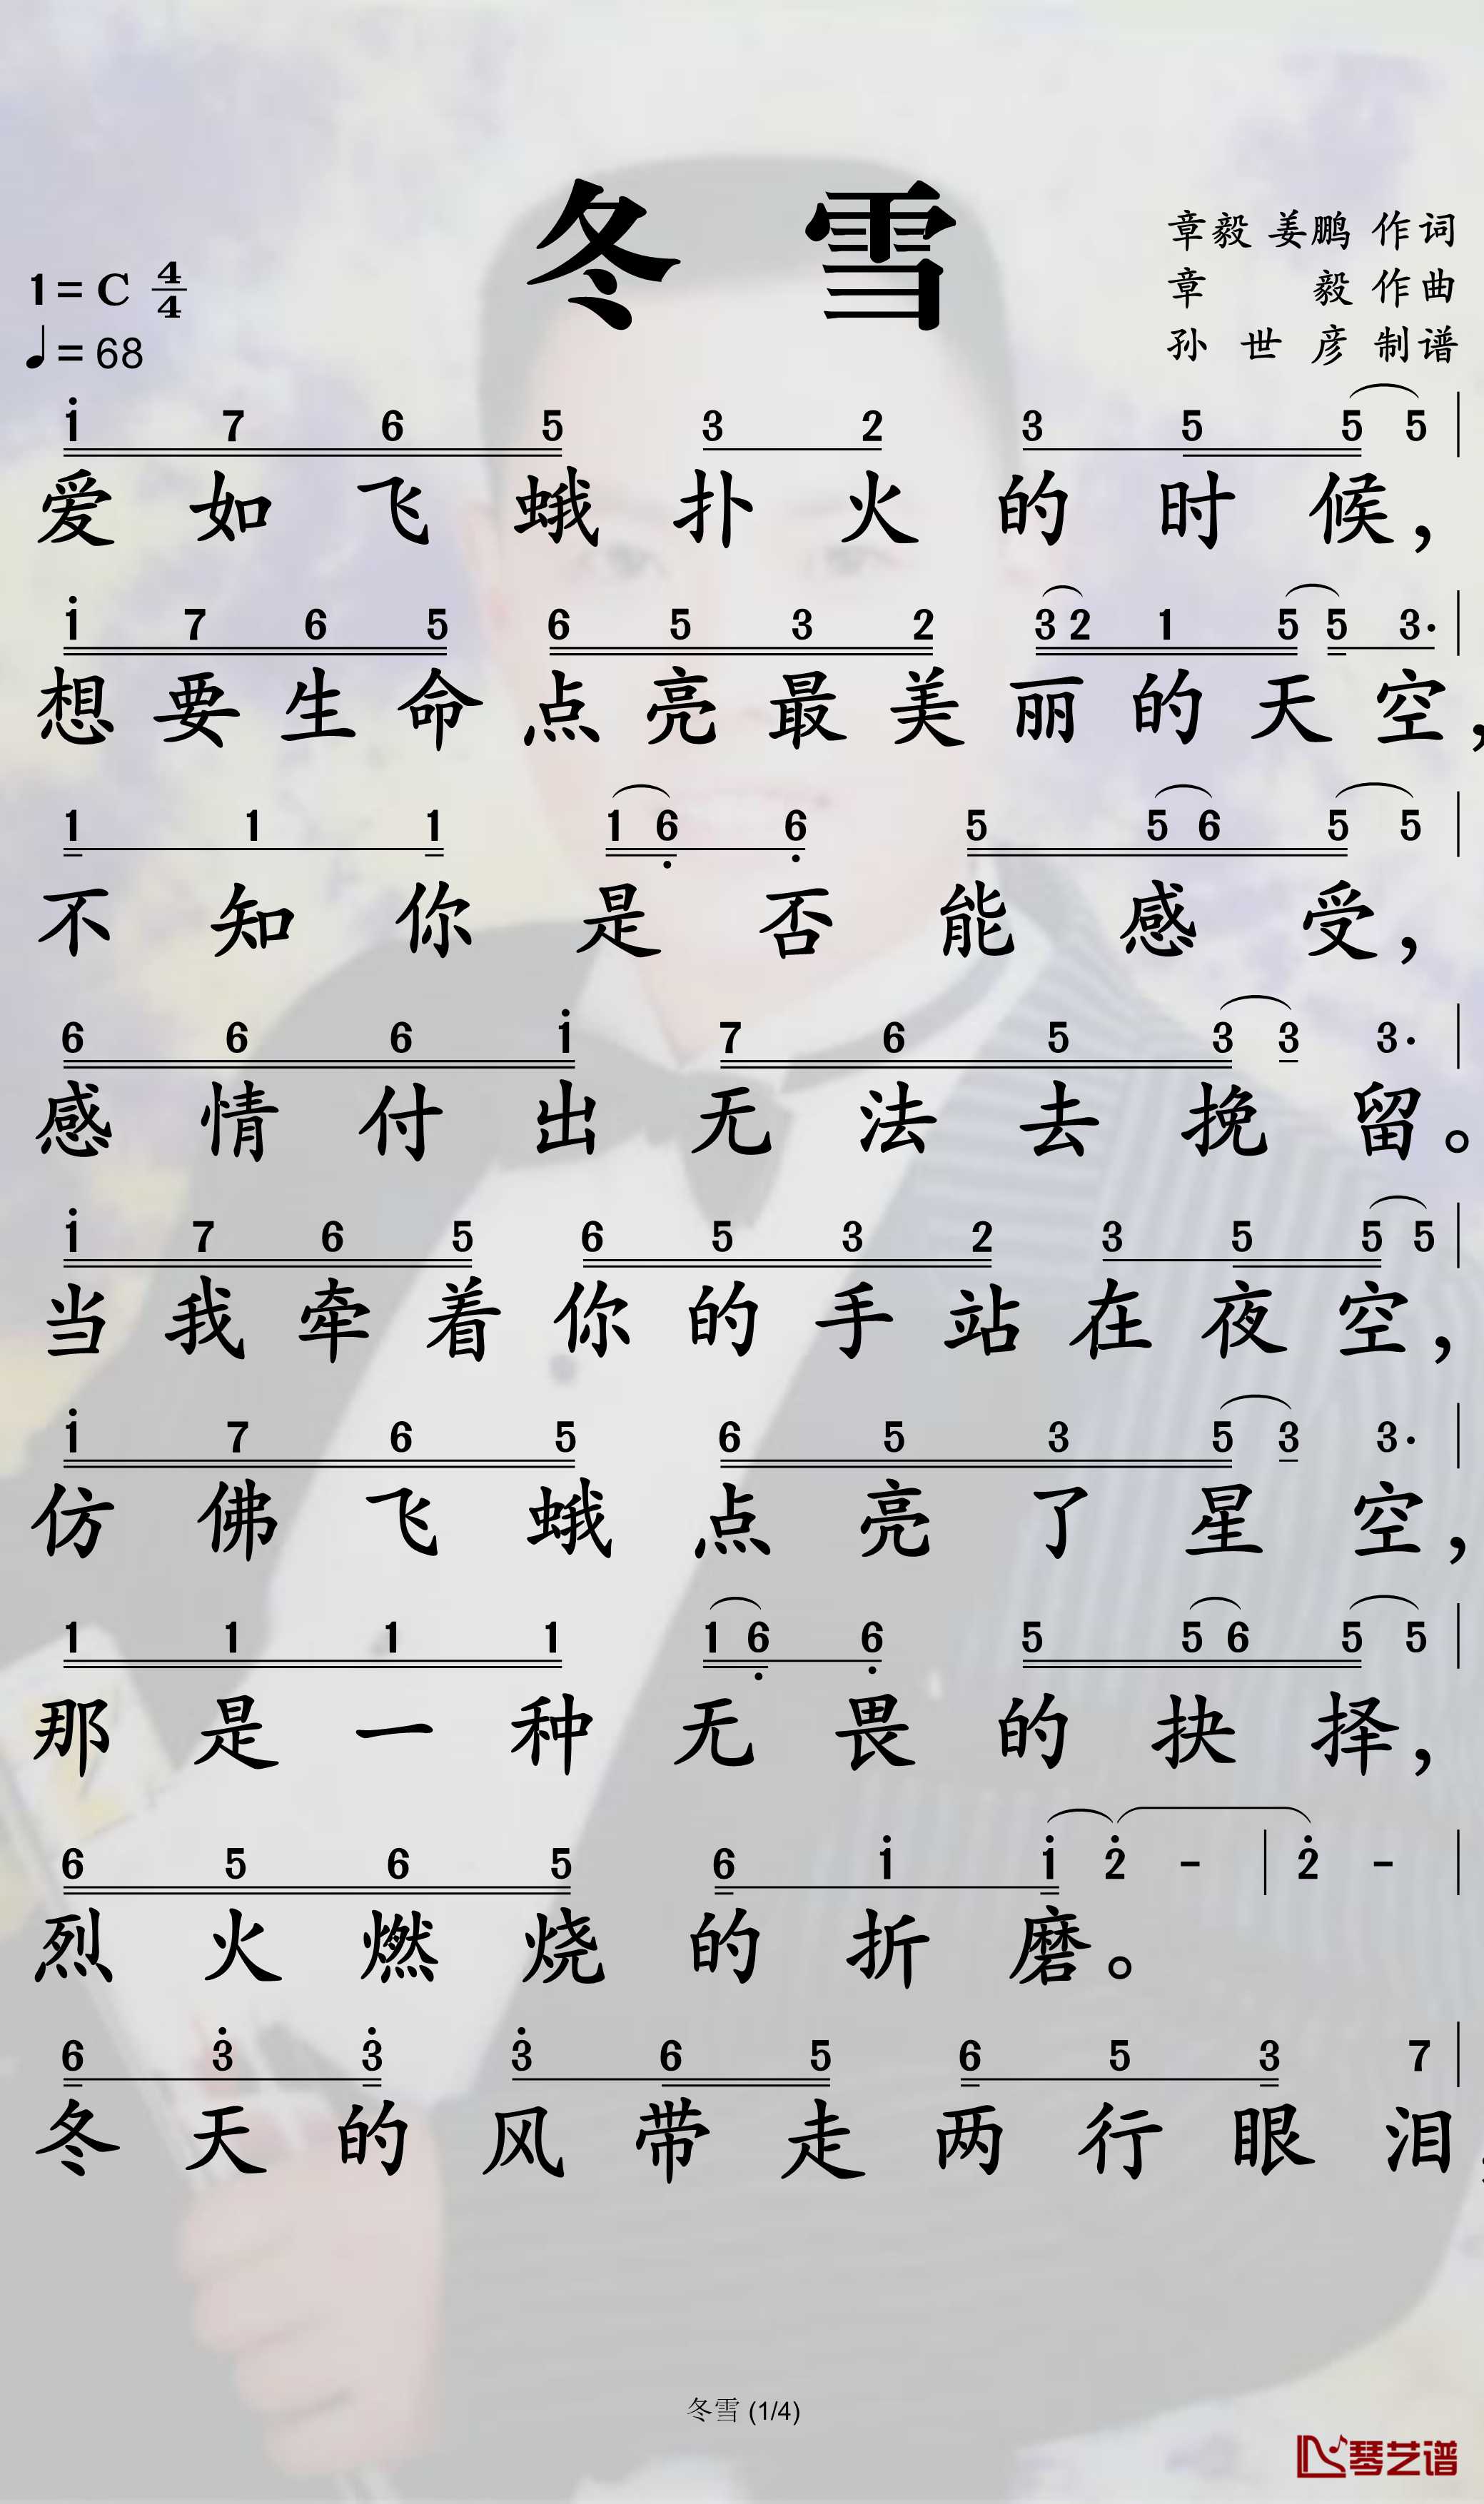 冬 雪
章毅 姜鹏 作词
章 毅 作曲
孙 世 彦 制谱
1=C 4/4
♩=68
i 7 6 5 3 2 3 5 5 5 |
爱如飞蛾扑火的时候，
i 7 6 5 6 5 3 2 3 2 1 5 5 3· |
想要生命点亮最美丽的天空，
1 1 1 1 6̣ 6̣ 5 5 6 5 5 |
不知你是否能感受，
6 6 6 i 7 6 5 3 3 3· |
感情付出无法去挽留。
i 7 6 5 6 5 3 2 3 5 5 5 |
当我牵着你的手站在夜空，
i 7 6 5 6 5 3 5 3 3· |
仿佛飞蛾点亮了星空，
1 1 1 1 1 6̣ 6̣ 5 5 6 5 5 |
那是一种无畏的抉择，
6 5 6 5 6 i i 2̇ - | 2̇ - |
烈火燃烧的折磨。
6 3̇ 3̇ 3̇ 6 5 6 5 3 7 |
冬天的风带走两行眼泪，
冬雪 (1/4)
琴艺谱